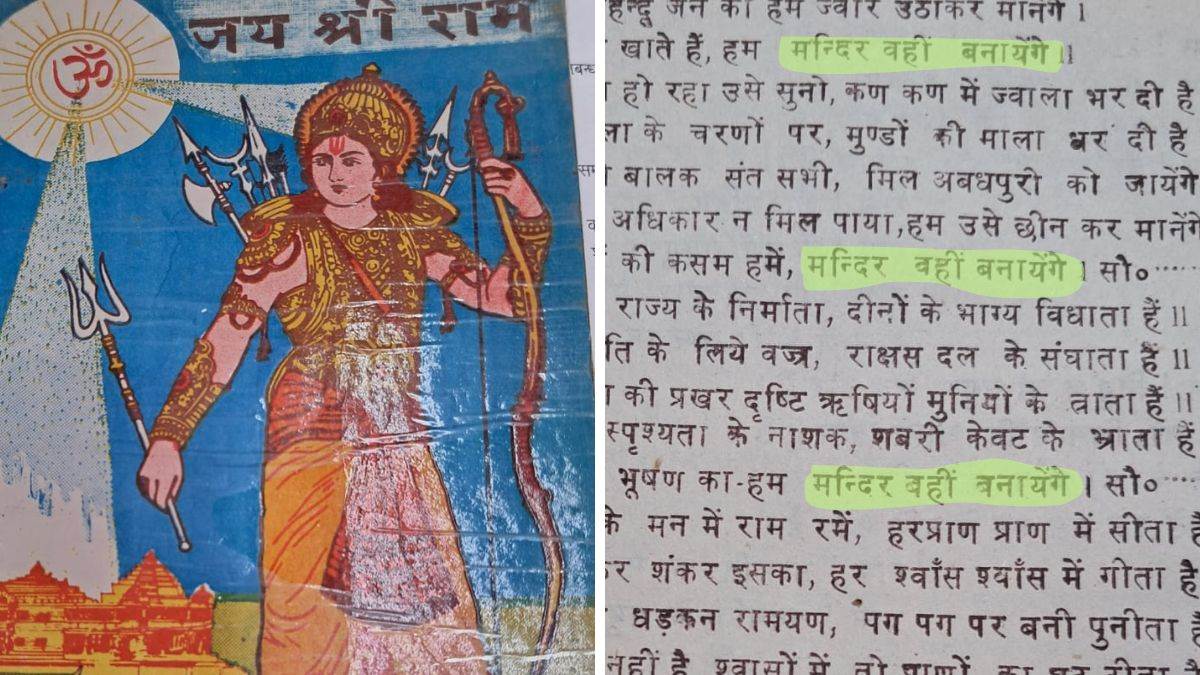 ॐ
जय श्री राम
हिन्दू जन का हम ज्वार उठाकर मानेंगे ।
खाते हैं, हम मन्दिर वहीं बनायेंगे ॥
हो रहा उसे सुनो, कण कण में ज्वाला भर दी है
के चरणों पर, मुण्डों की माला धर दी है
बालक संत सभी, मिल अबधपुरी को जायेंगे
अधिकार न मिल पाया,हम उसे छीन कर मानेंगे
की कसम हमें, मन्दिर वहीं बनायेंगे । सौ०·····
राज्य के निर्माता, दीनों के भाग्य विधाता हैं ॥
के लिये वज्र, राक्षस दल के संघाता हैं ॥
की प्रखर दृष्टि ऋषियों मुनियों के त्राता हैं ॥
स्पृश्यता के नाशक, शबरी केवट के भ्राता हैं
भूषण का-हम मन्दिर वहीं बनायेंगे । सौ०····
के मन में राम रमें, हरप्राण प्राण में सीता है
शंकर इसका, हर श्वाँस श्याँस में गीता है
धड़कन रामयण, पग पग पर बनी पुनीता है
नहीं है श्वासों में तो प्राणों का घट रीता है